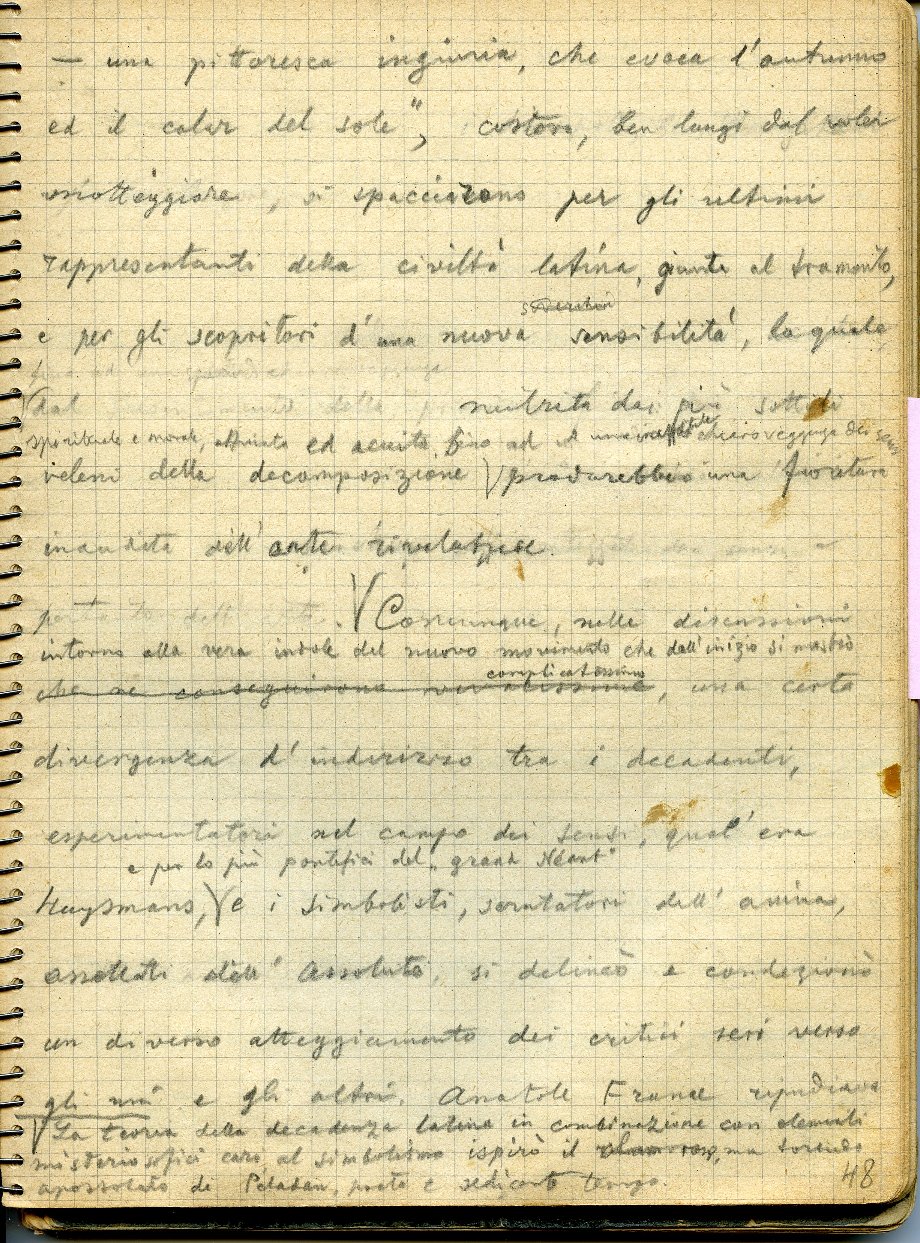 — una pittoresca ingiuria, che evoca l'autunno
ed il calar del sole", costoro, ben lungi dal voler
motteggiare, si spacciarono per gli ultimi
rappresentanti della civiltà latina, giunta al tramonto,
e per gli scopritori d'una nuova sensibilità, la quale,
dal nutrita dai più sottili
spirituale e morale, affinata ed acuita fino ad una ineffabile chiaroveggenza dei sensi
veleni della decomposizione produrrebbe una fioritura
inaudita dell'arte
Comunque, nelle discussioni
intorno alla vera indole del nuovo movimento che dall'inizio si mostrò
complicatissimo
che ne conseguirono vivacissime, una certa
divergenza d'indirizzo tra i decadenti,
esperimentatori nel campo dei sensi, qual'era
e per lo più pontefici del "grand Néant"
Huysmans, e i simbolisti, scrutatori dell'anima,
assetati dell'Assoluto, si delineò e condizionò
un diverso atteggiamento dei critici seri verso
gli uni e gli altri. Anatole France ripudiava
La teoria della decadenza latina in combinazione con elementi
misteriosofici cari al simbolismo ispirò il clamoroso, ma
apostolato di Péladan, poeta e sedicente
48